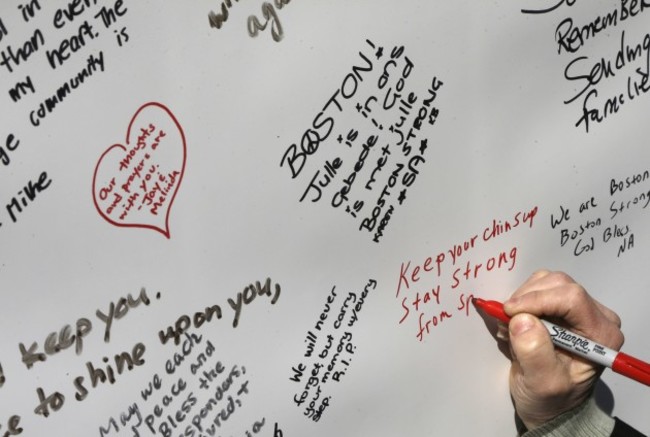 l in
than even
my heart. The
ge community is
Mike
again
Remember
Sending
familie
Our thoughts
and prayers are
with you.
- Jay &
Melinda
BOSTON!
Julle is in ons
Gebede! God
is met julle
BOSTON STRONG
KAREN *SA*
We are Boston
Boston Strong
God Bless
NA
Keep your chins up
Stay Strong
from Sp
Sharpie
keep you.
e to shine upon you,
May we each
Peace and
Bless the
sponders,
ured, +
ia
We will never
forget but carry
your memory w/every
step. R.I.P.